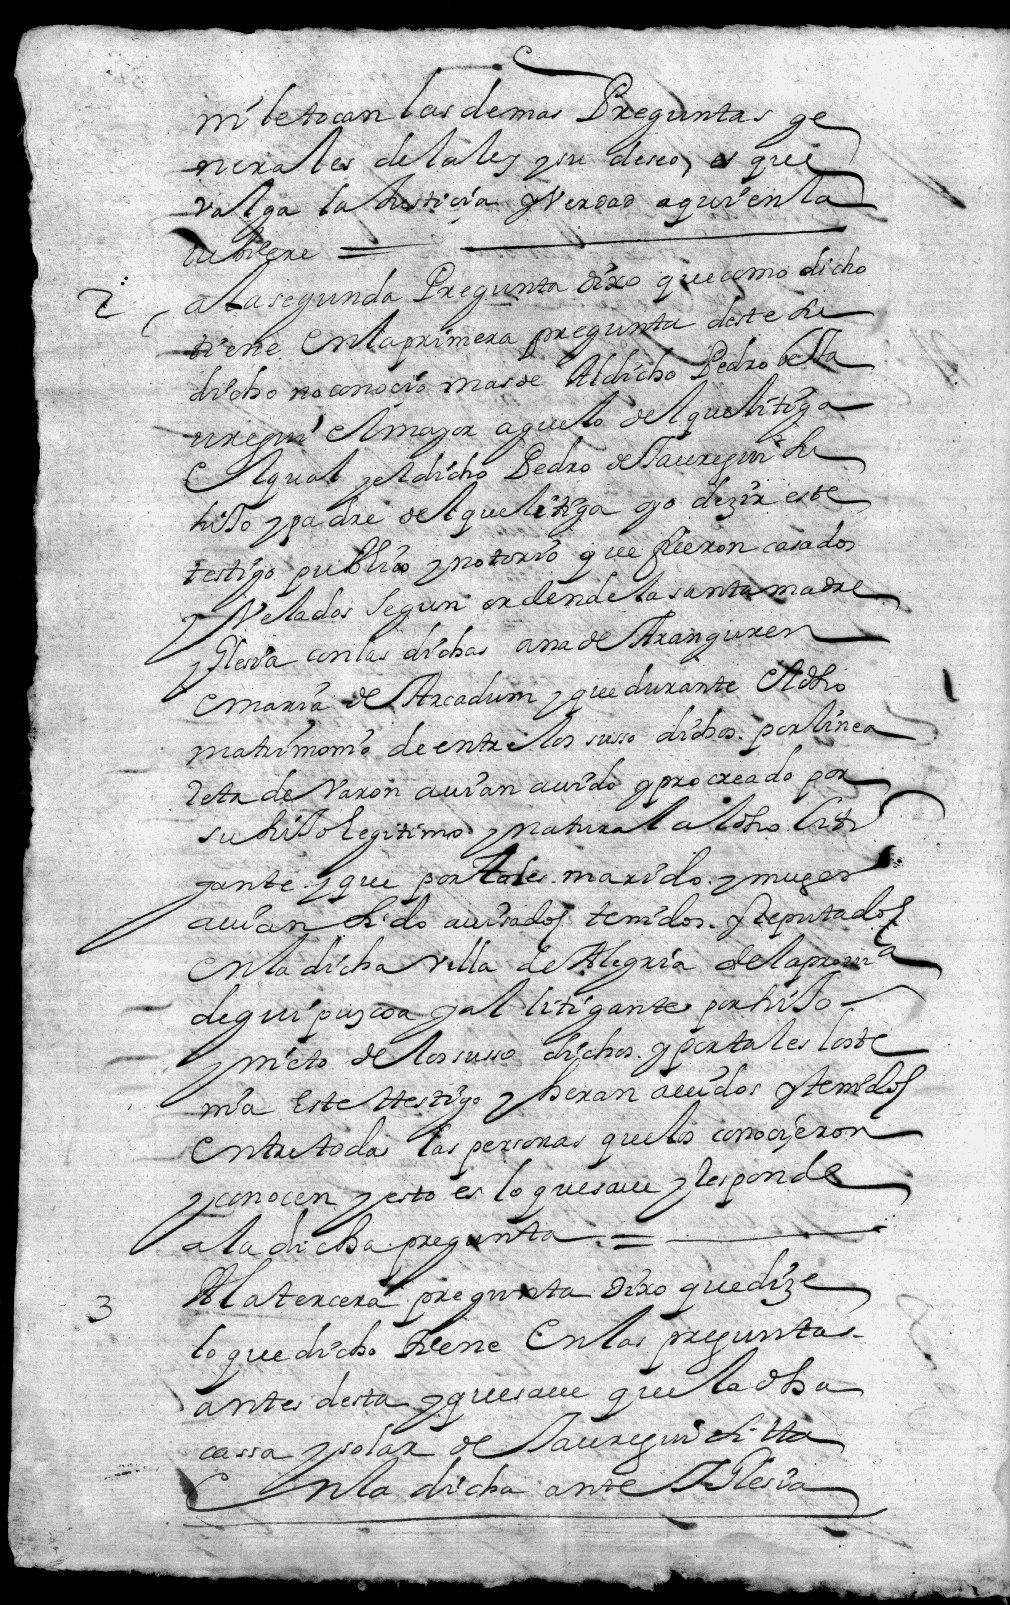 ni le tocan las demas Preguntas ge
nerales de la ley y su deseo, es que
valga la Justicia y Verdad a quien la
tubiere =
2 a la segunda Pregunta dixo que como dicho
tiene en la primera pregunta deste su
dicho no conocio mas de Al dicho Pedro de Ja
uregui el mayor aguelo del que litiga
El qual y el dicho Pedro de Jauregui su
hijo y padre del que litiga oyo dezir este
testigo publico y notorio que fueron casados
y Velados Segun orden de la santa madre
yglesia con las dichas ana de Aranguren
e maria de Arcadum y que durante el dho
matrimonio de entre los suso dichos por linea
reta de Varon avian avido y procreado por
su hijo legitimo y natural al dho liti
gante y que por tales marido y muger
avian sido avisados tenidos y Reputados
en la dicha villa de Alegria de la provi᷉a
de guipuzcoa y al litigante por hijo
y nieto de los suso dichos y por tales los te
nia este testigo y heran avidos y tenidos
entre todas las personas que los conocieron
y conocen y esto es lo que save y Responde
a la dicha pregunta =
3 A la tercera pregunta dixo que dize
lo que dicho tiene en las preguntas
antes desta y que save que la dha
cassa y solar de Jauregui
En la dicha ante Yglesia